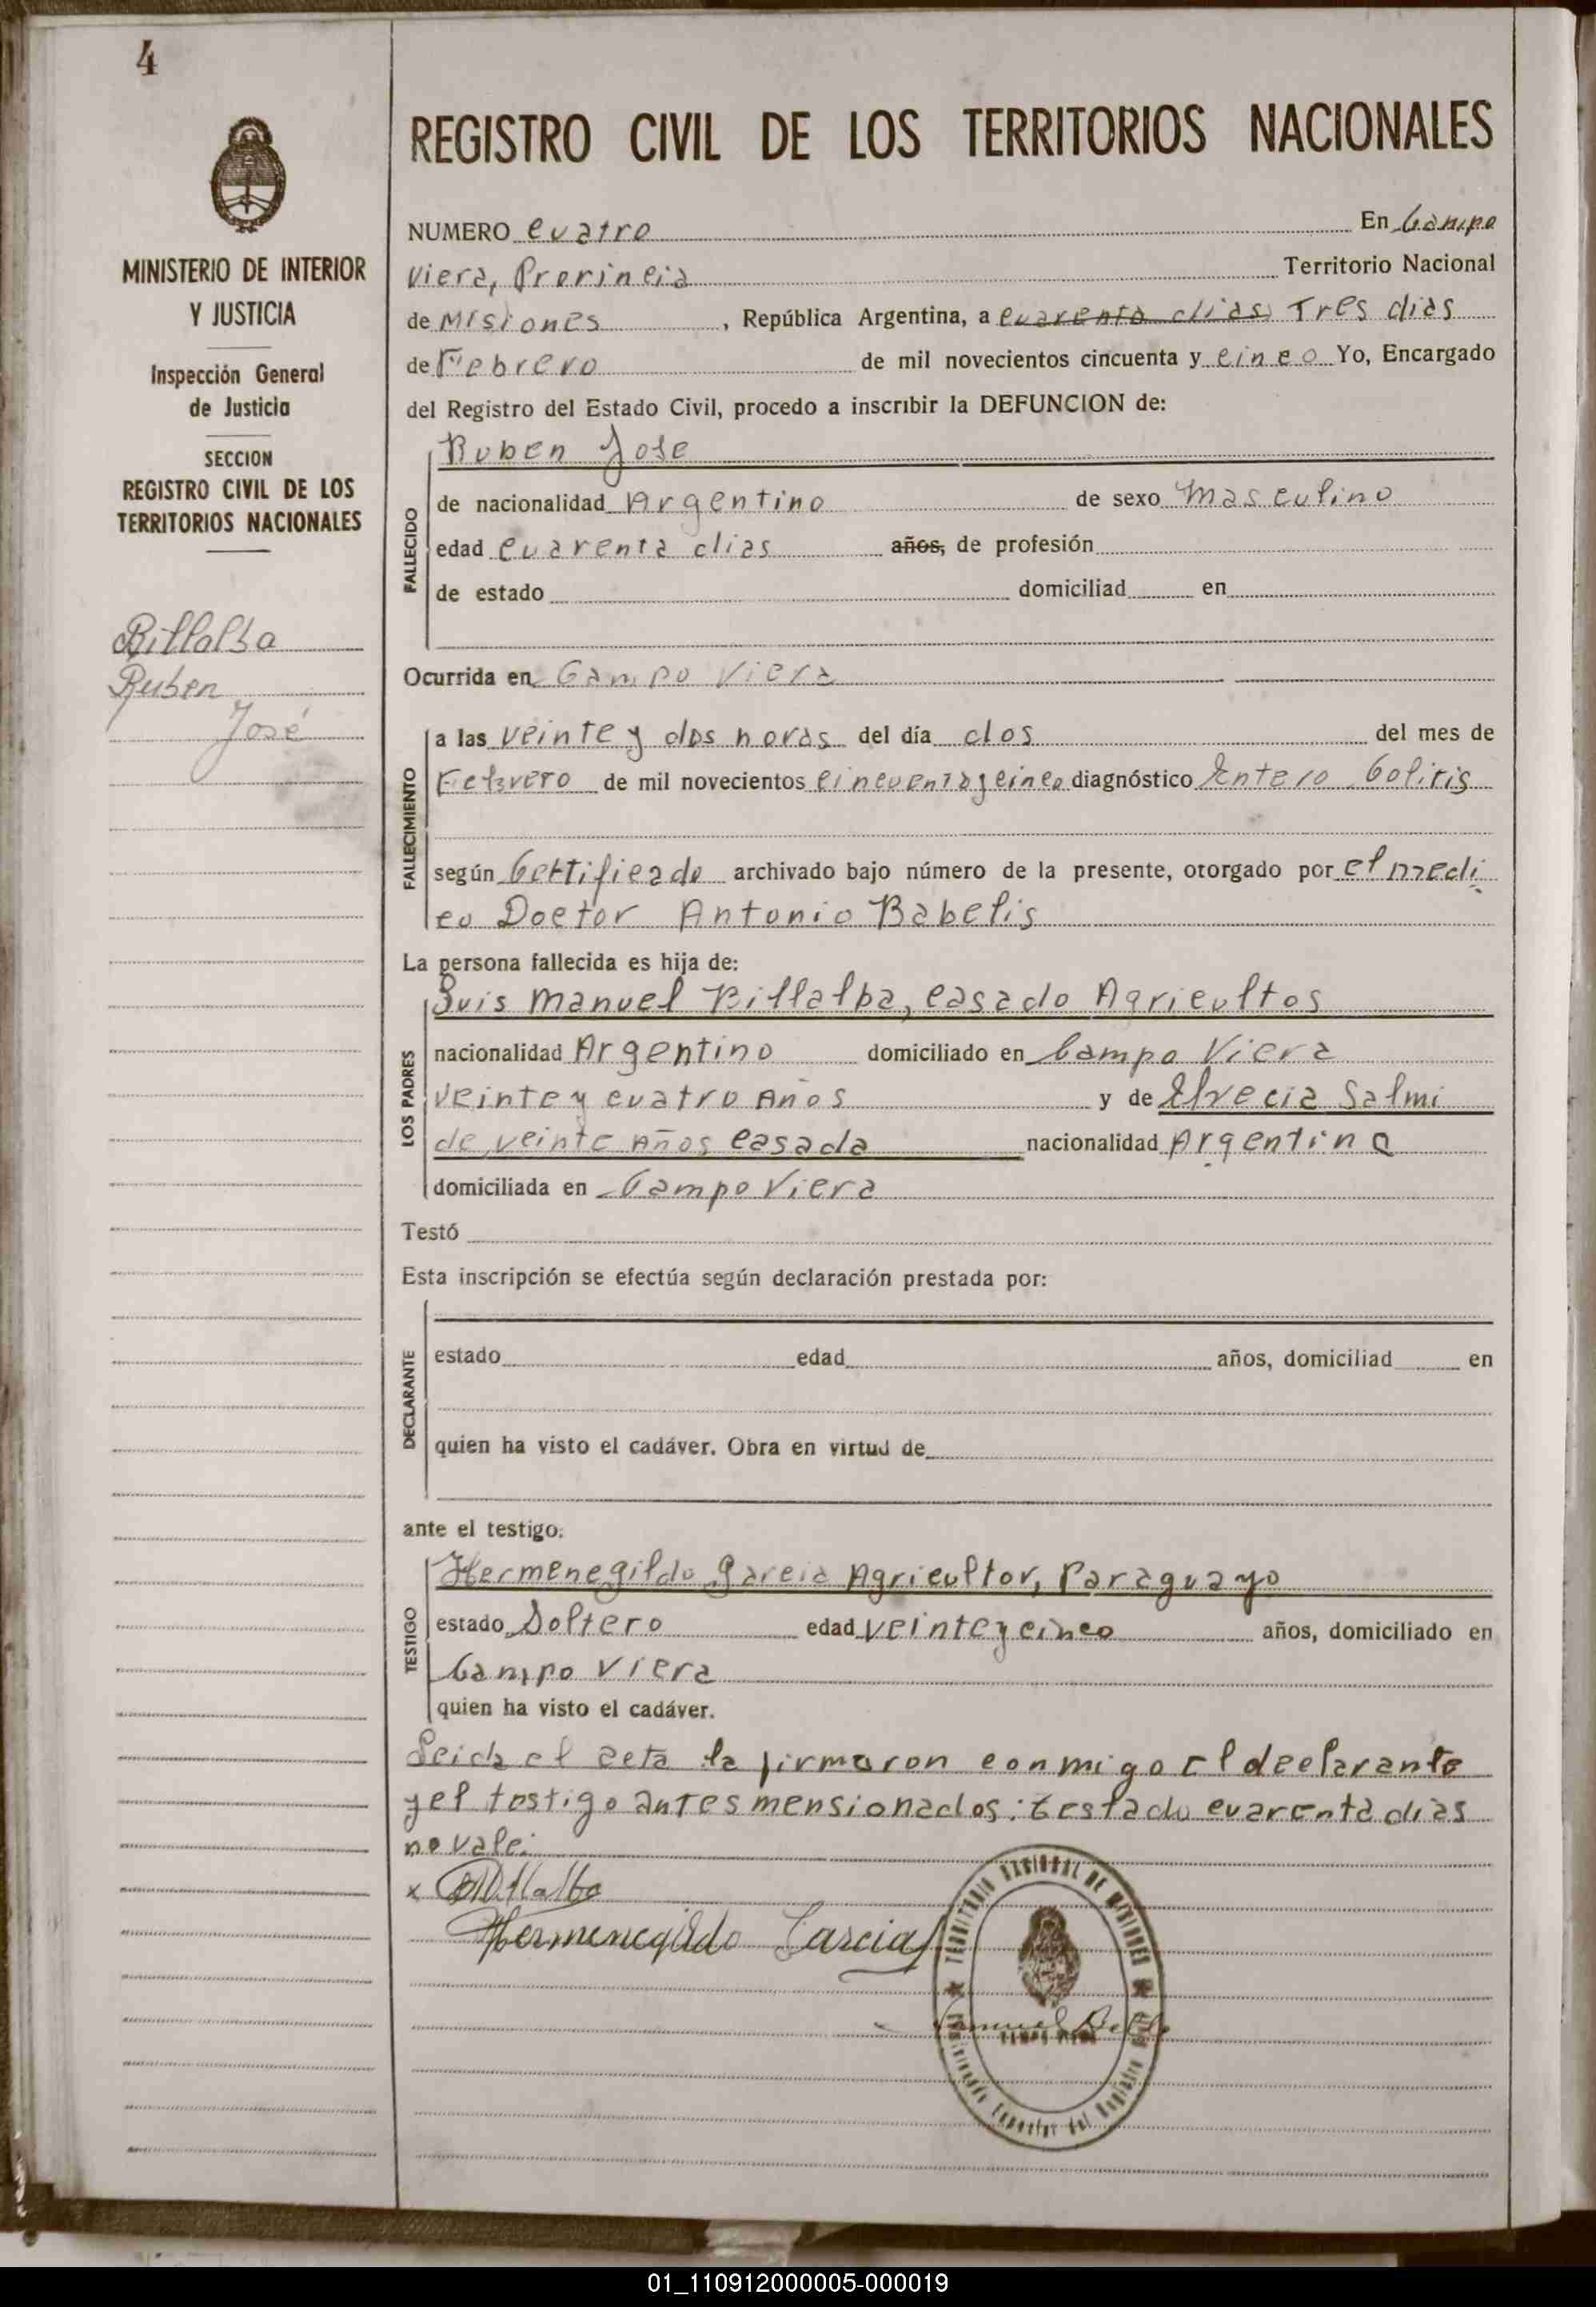 4
REGISTRO CIVIL DE LOS TERRITORIOS NACIONALES
MINISTERIO DE INTERIOR
Y JUSTICIA
Inspección General
de Justicia
SECCION
REGISTRO CIVIL DE LOS
TERRITORIOS NACIONALES
Billalba
Ruben
José
NUMERO cuatro En Campo
Viera, Provincia Territorio Nacional
de Misiones, República Argentina, a cuarenta dias Tres dias
de Febrero de mil novecientos cincuenta y cinco Yo, Encargado
del Registro del Estado Civil, procedo a inscribir la DEFUNCION de:
FALLECIDO
Ruben Jose
de nacionalidad Argentino de sexo masculino
edad cuarenta dias años, de profesión
de estado domiciliad en
Ocurrida en Campo Viera
FALLECIMIENTO
a las veinte y dos horas del día dos del mes de
Febrero de mil novecientos cincuenta y cinco diagnóstico Entero Colitis
según Certificado archivado bajo número de la presente, otorgado por el medi
co Doctor Antonio Babelis
La persona fallecida es hija de:
LOS PADRES
Luis Manuel Billalba, casado Agricultos
nacionalidad Argentino domiciliado en Campo Viera
veinte y cuatro Años y de Salmi
de veinte Años casada nacionalidad Argentina
domiciliada en Campo Viera
Testó
Esta inscripción se efectúa según declaración prestada por:
DECLARANTE
estado edad años, domiciliad en
quien ha visto el cadáver. Obra en virtud de
ante el testigo:
TESTIGO
Hermenegildo Garcia Agricultor, Paraguayo
estado Soltero edad veinte y cinco años, domiciliado en
Campo Viera
quien ha visto el cadáver.
Leida el acta la firmaron conmigo el declarante
y el testigo antes mensionados: testado cuarenta dias
no vale:
x Billalba
Hermenegildo Garcia
TERRITORIO NACIONAL DE MISIONES
01_110912000005-000019